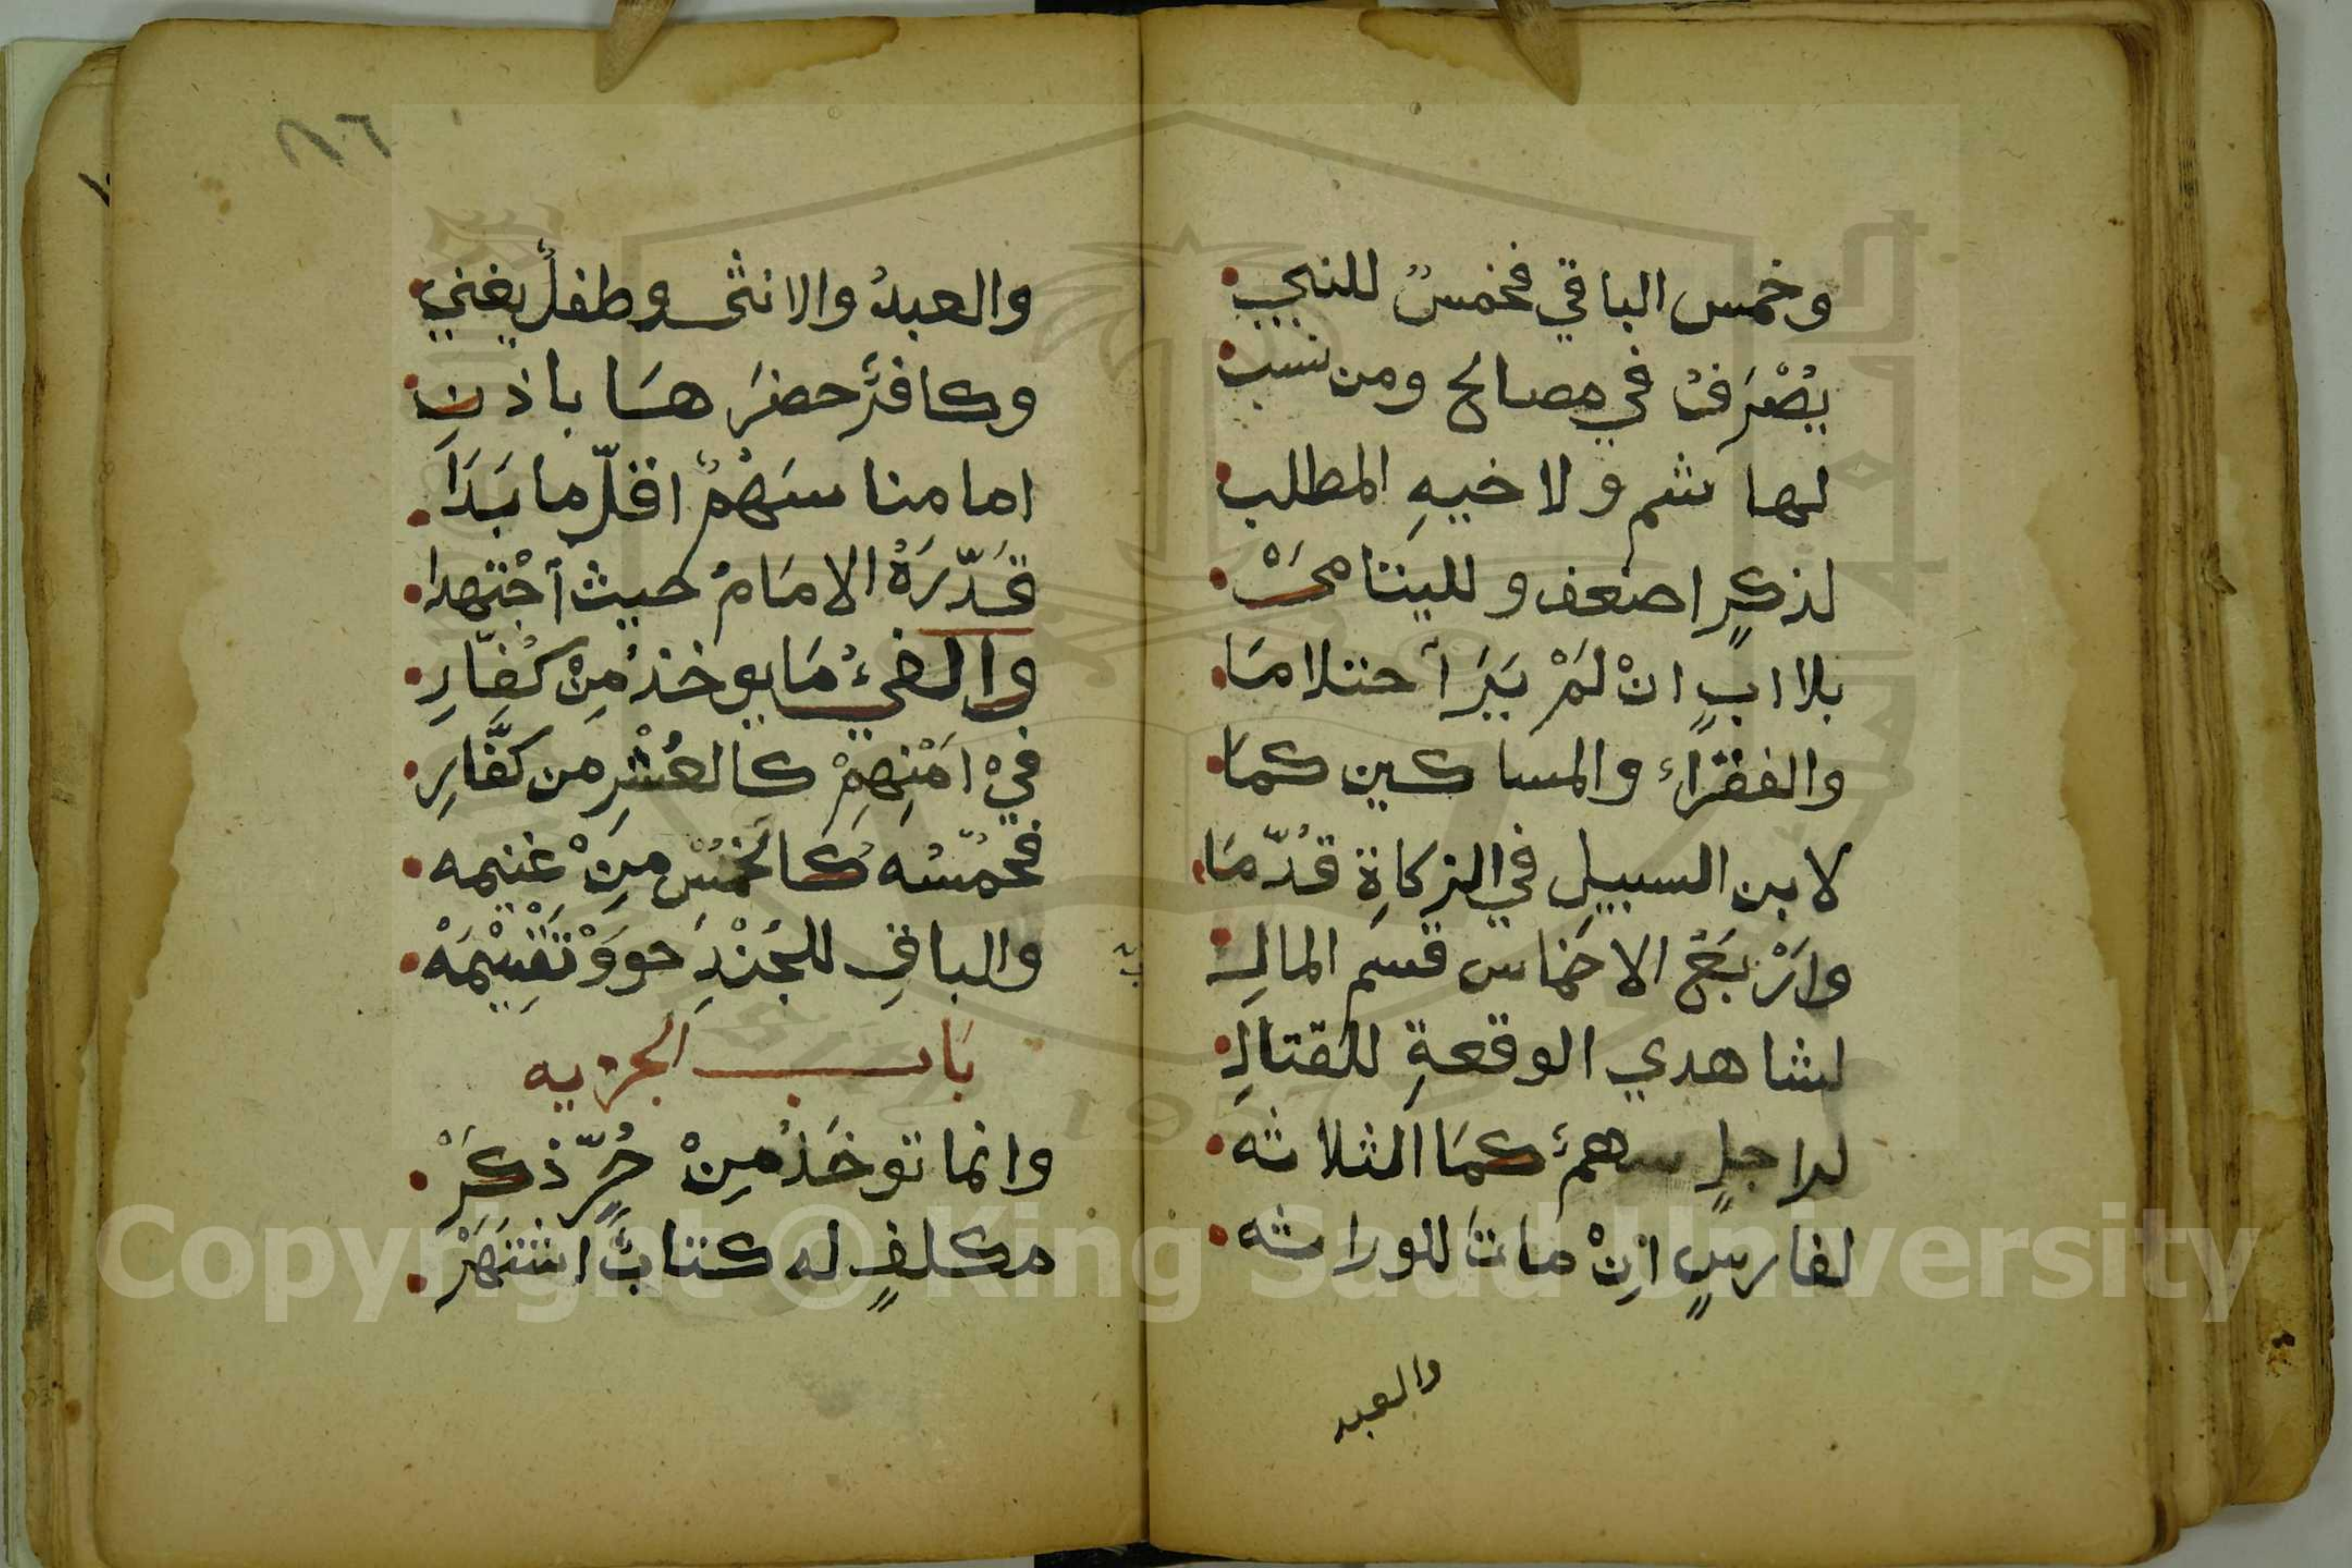 وخمس الباقي فخمسٌ للنبي
يُصْرَفُ في مصالح ومن نسب
لهاشم ولاخيهِ المطلب
لذكرٍ اضعف ولليتامىَْ
بلا ابٍ انْ لَمْ يَرَ احتلامَا
والفقرَاء والمساكين كمَا
لابن السبيل في الزكاةِ قُدّمَا
وارْبَعُ الاخماس قسم المالِ
لشاهدي الوقعةِ للقتالِ
لراجلٍ سهمٌ كمَا الثلاثه
لفارسٍ اِنْ مَاتَ للوراثه
والعبد
والعبدُ والانثى وطفلٌ يغني
وكافرٌ حضرَ هسَا باذنِ
امامنا سَهْمٌ اقلّ ما بَدَا
قَدّرَهُ الامَامُ حيث اجْتهدا
والفيءُ مَا يوخذُ مِنْ كُفّارِ
فيْ امْنِهِمْ كالعُشْرِ من كفَّارِ
فخمّسُه كَالخمُسْ مِنْ غنيمه
والباقِ للجُنْدِ حووَْ تَقْسِيْمَهْ
بَاب الجزيه
وانما توخَذُ مِنْ حُرٍّ ذكَرَْ
مكلفٍ له كتابٌ اشتَهَرْ
Copyright © King Saud University